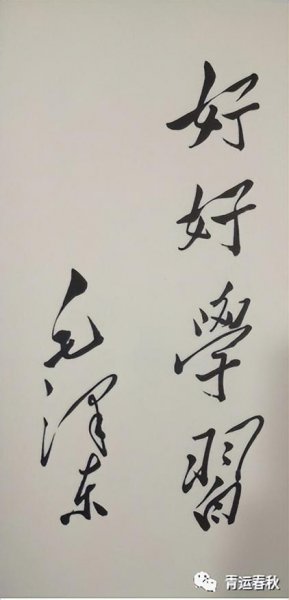 好好學習
毛澤东
青运春秋